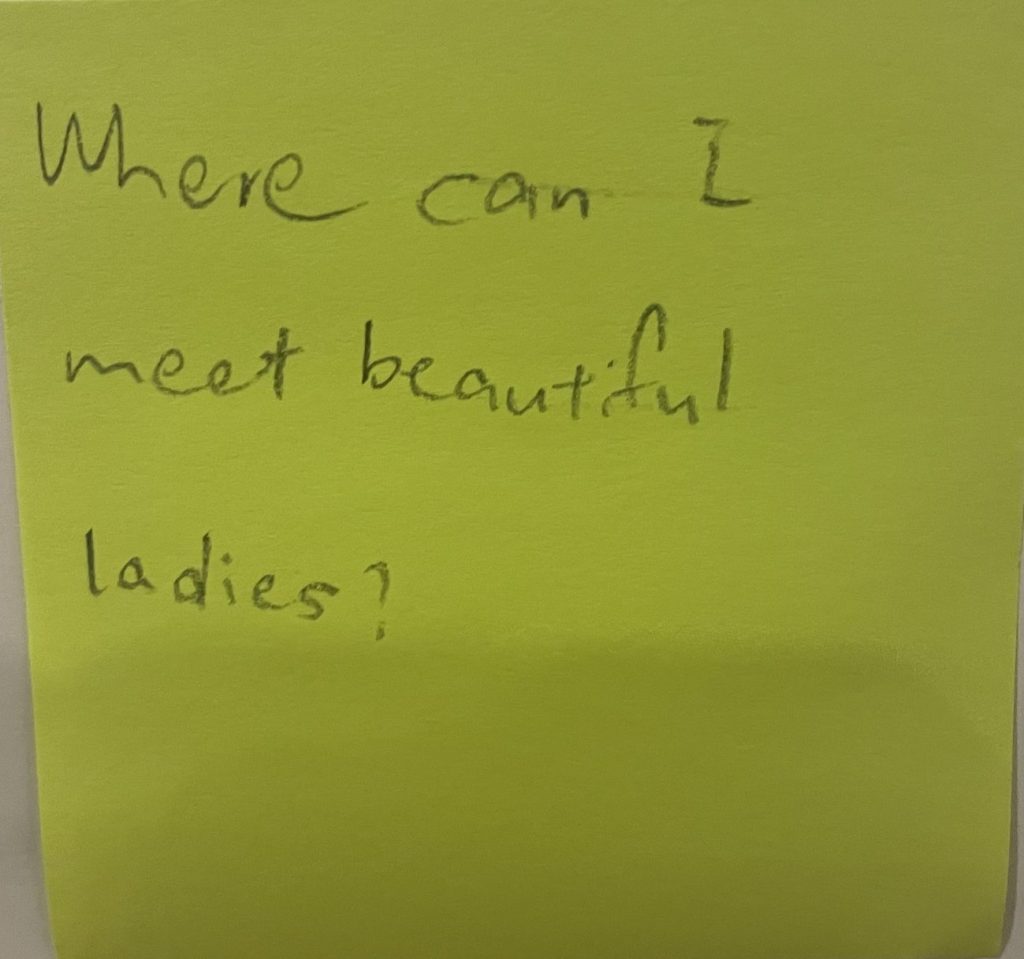 Where can I
meet beautiful
ladies?